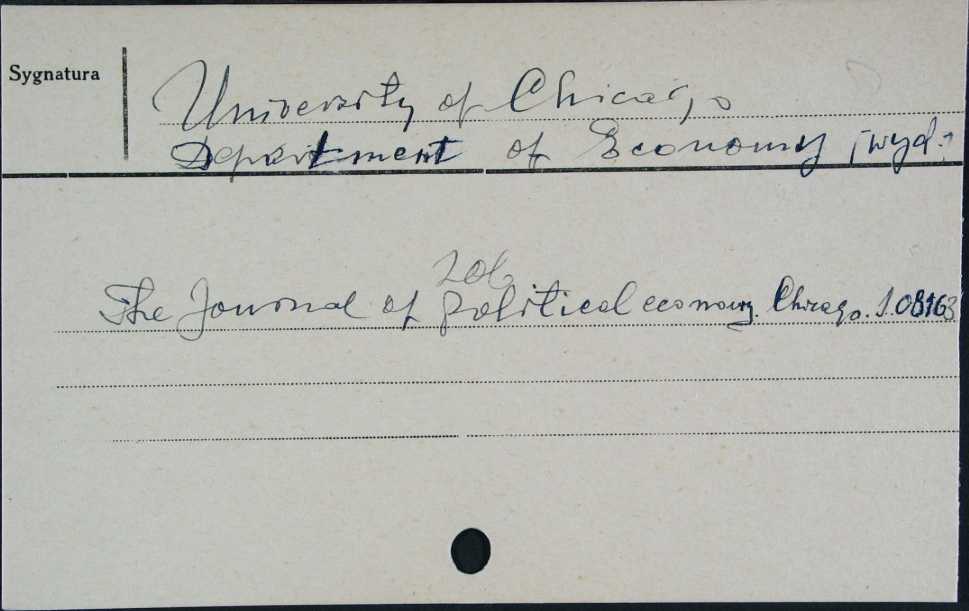 Sygnatura
University of Chicago
Department of Economy [wyd.]
zob.
The Journal of Political economy. Chicago. J.08163